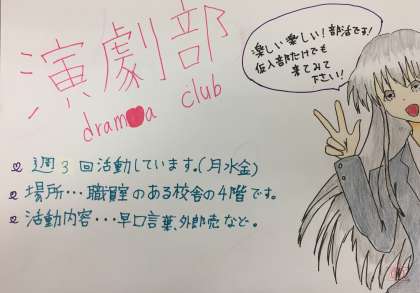 演劇部
drama club
楽しい楽しい！部活です！
仮入部だけでも
来てみて
下さい！
週3回活動しています。(月水金)
場所･･･職員室のある校舎の4階です。
活動内容･･･早口言葉、外郎売など。